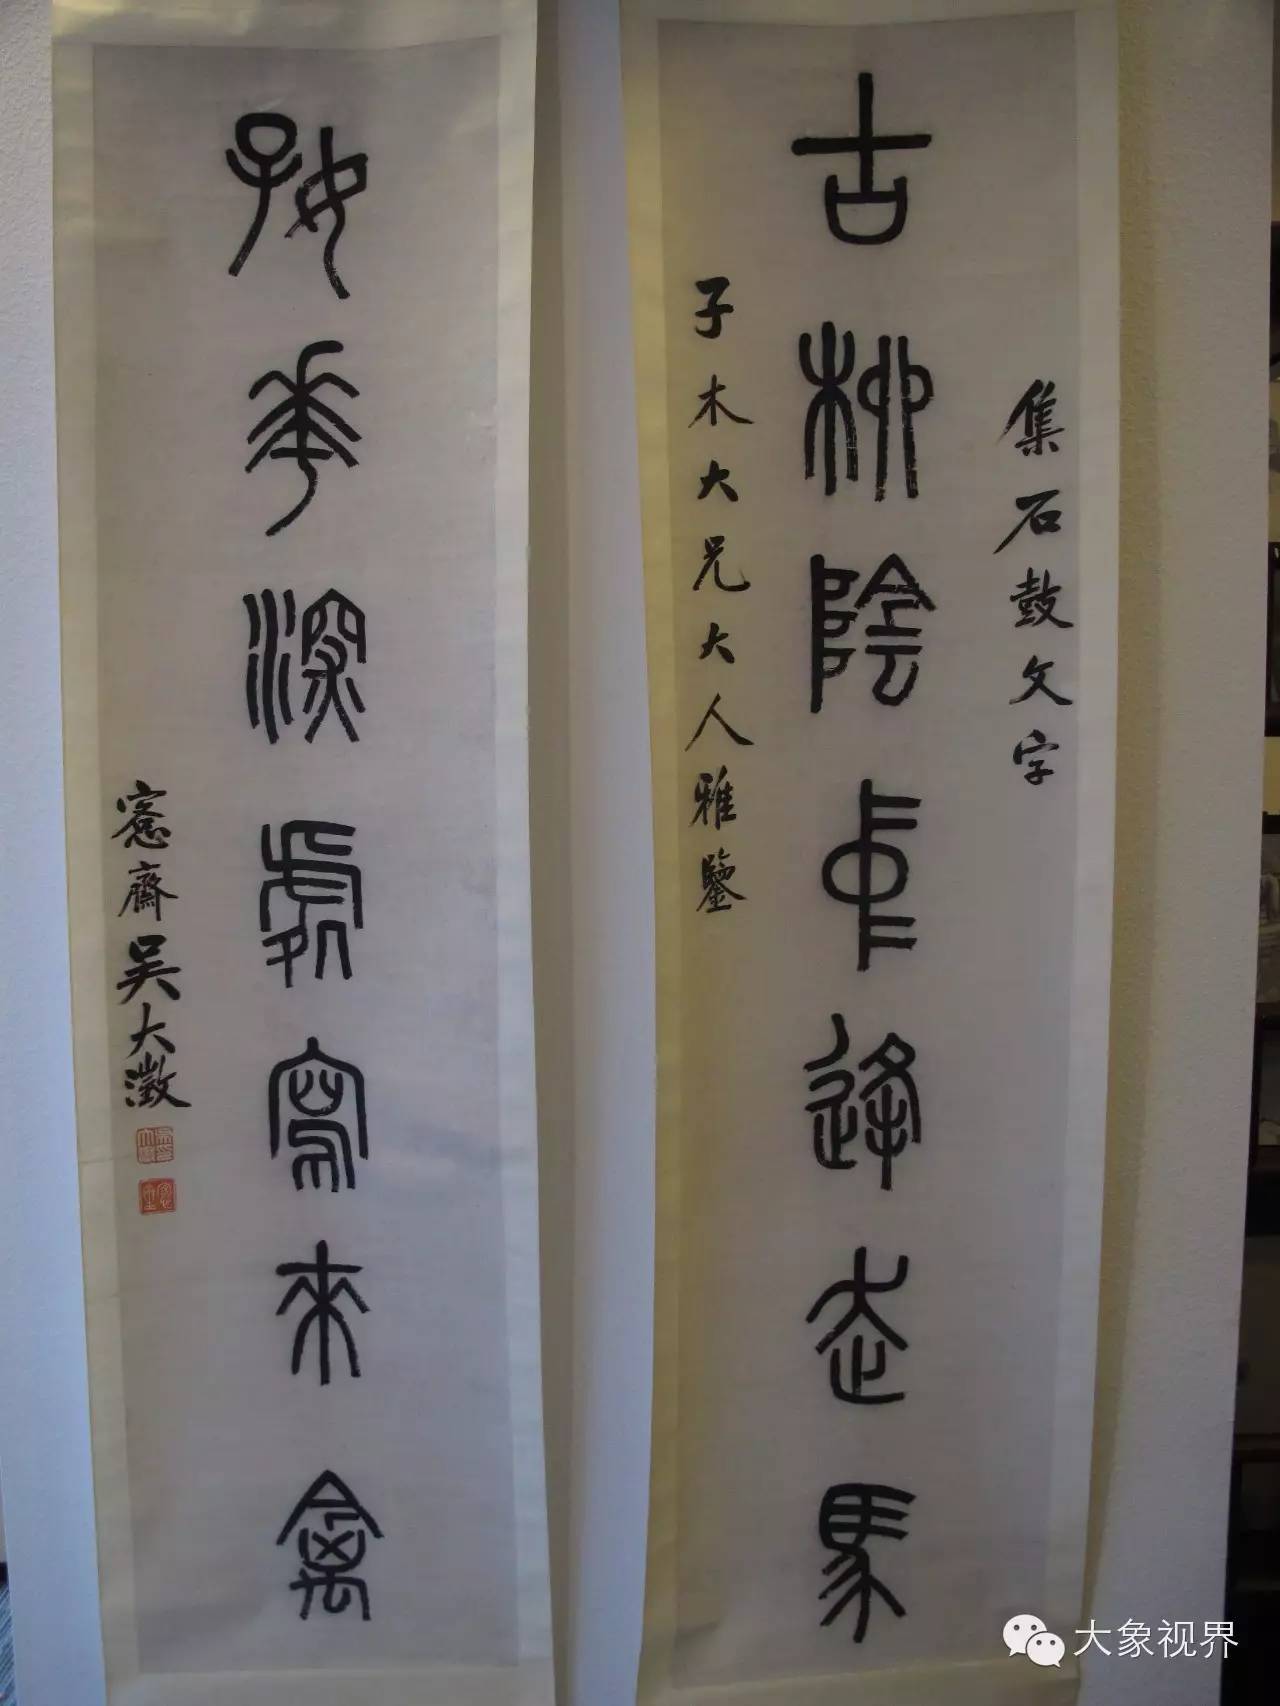 集石鼓文字
古柳陰中逢走馬
子木大兄大人雅鑒
好華深處寫來禽
愙齋吳大澂
大象视界